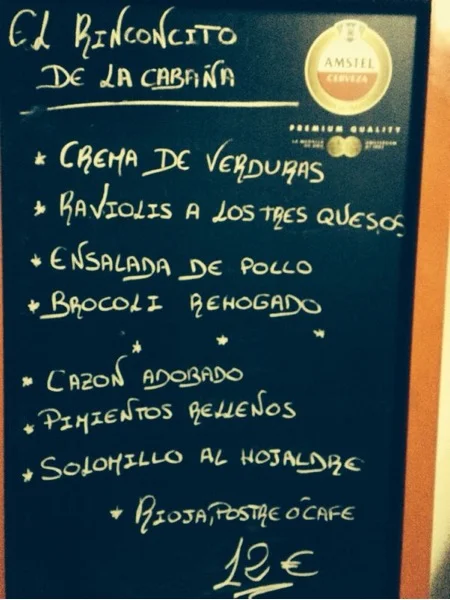 EL RINCONCITO
DE LA CABAÑA
AMSTEL
CERVEZA
PREMIUM QUALITY
* CREMA DE VERDURAS
* RAVIOLIS A LOS TRES QUESOS
* ENSALADA DE POLLO
* BROCOLI REHOGADO
* * *
* CAZON ADOBADO
* PIMIENTOS RELLENOS
* SOLOMILLO AL HOJALDRE
* RIOJA, POSTRE O CAFE
12 €